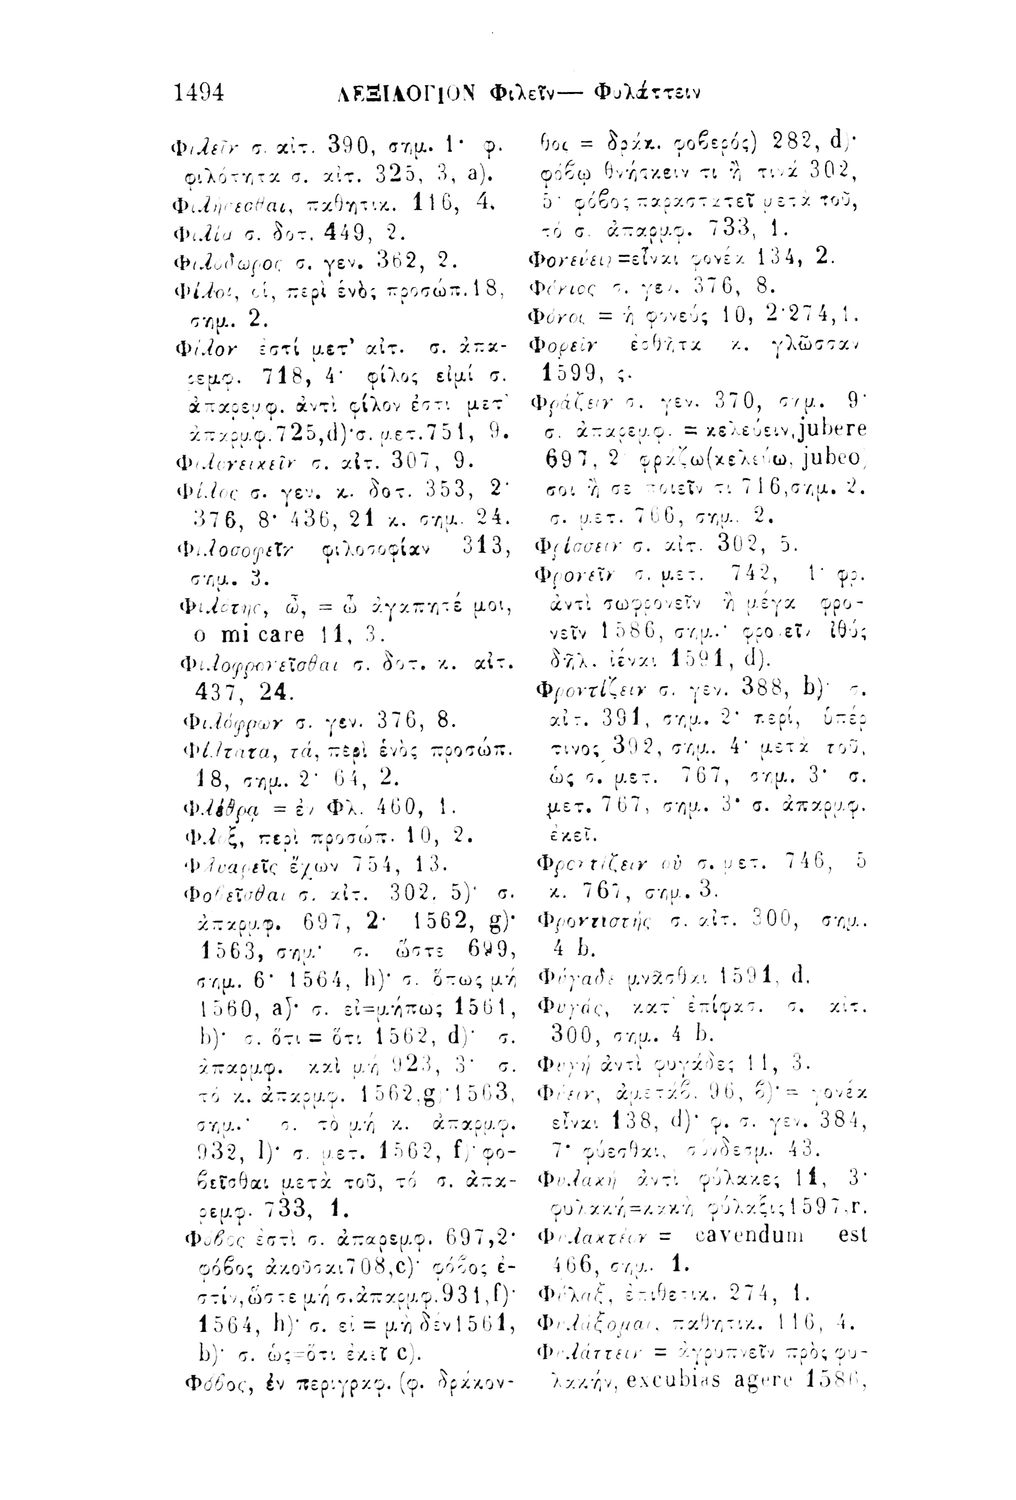 1494 ΛΕΞΙΛΟΓΙΟΝ Φιλεῖν— Φυλάττειν
Φιλεῖν σ. αἰτ. 390, σημ. 1· φ.
φιλότητα σ. αἰτ. 325, 3, a).
Φιλήσεσθαι, παθητικ. 116, 4.
Φιλία σ. δοτ. 449, 2.
Φιλόδωρος σ. γεν. 362, 2.
Φίλοι, οἱ, περὶ ἑνὸς προσώπ. 18,
σημ. 2.
Φίλον ἐστί μετ' αἰτ. σ. ἀπα-
ρεμφ. 718, 4· φίλος εἰμί σ.
ἀπαρεμφ. ἀντὶ φίλον ἐστι μετ'
ἀπαρμφ. 725, d)· σ. μετ. 751, 9.
Φιλονεικεῖν σ. αἰτ. 307, 9.
Φίλος σ. γεν. κ. δοτ. 353, 2·
376, 8· 436, 21 κ. σημ. 24.
Φιλοσοφεῖν φιλοσοφίαν 313,
σημ. 3.
Φιλότης, ὦ, = ὦ ἀγαπητέ μοι,
o mi care 11, 3.
Φιλοφρονεῖσθαι σ. δοτ. κ. αἰτ.
437, 24.
Φιλόφρων σ. γεν. 376, 8.
Φίλτατα, τά, περὶ ἑνὸς προσώπ.
18, σημ. 2· 64, 2.
Φλέθρᾳ = ἐν Φλ. 460, 1.
Φλὸξ, περὶ προσώπ. 10, 2.
Φλυαρεῖς ἔχων 754, 13.
Φοβεῖσθαι σ. αἰτ. 302, 5)· σ.
ἀπαρμφ. 697, 2· 1562, g)·
1563, σημ.· σ. ὥστε 699,
σημ. 6· 1564, h)· σ. ὅπως μή
1560, a)· σ. εἰ=μήπως 1561,
b)· σ. ὅτι = ὅτι 1562, d)· σ.
ἀπαρμφ. καὶ μή 923, 3· σ.
τό κ. ἀπαρμφ. 1562, g)· 1563,
σημ.· σ. τὸ μή κ. ἀπαρμφ.
932, l)· σ. μετ. 1562, f)· φο-
βεῖσθαι μετὰ τοῦ, τό σ. ἀπα-
ρεμφ. 733, 1.
Φόβος ἐστὶ σ. ἀπαρεμφ. 697, 2·
φόβος ἀκοῦσαι 708, c)· φόβος ἐ-
στίν, ὥστε μή σ. ἀπαρμφ. 931, f)·
1564, h)· σ. εἰ = μὴ δέν 1561,
b)· σ. ὡς=ὅτι ἐκεῖ c).
Φόβος, ἐν περιγραφ. (φ. δράκον-
θος = δράκ. φοβερός) 282, d)·
φόβῳ θνήσκειν τι ἢ τινά 302,
5· φόβος παραστατεῖ μετὰ τοῦ,
τό σ. ἀπαρμφ. 733, 1.
Φονεύειν =εἶναι φονέα 134, 2.
Φόνιος σ. γεν. 376, 8.
Φόνοι = ἡ φονεύς 10, 2· 274, 1.
Φορεῖν ἐσθῆτα κ. γλῶσσαν
1599, ς.
Φράζειν σ. γεν. 370, σημ. 9·
σ. ἀπαρεμφ. = κελεύειν, jubere
697, 2· φράζω (κελεύω, jubeo)
σοι ἢ σε ποιεῖν τι 716, σημ. 2.
σ. μετ. 766, σημ. 2.
Φρίσσειν σ. αἰτ. 302, 5.
Φρονεῖν σ. μετ. 742, 1· φρ.
ἀντὶ σωφρονεῖν ἢ μέγα φρο-
νεῖν 1586, σημ.· φρονεῖν ἰθύς
δηλ. ἰέναι 1591, d).
Φροντίζειν σ. γεν. 388, b)· σ.
αἰτ. 391, σημ. 2· περί, ὑπέρ
τινος 392, σημ. 4· μετὰ τοῦ,
ὡς σ. μετ. 767, σημ. 3· σ.
μετ. 767, σημ. 3· σ. ἀπαρμφ.
ἐκεῖ.
Φροντίζειν οὐ σ. μετ. 746, 5
κ. 767, σημ. 3.
Φροντιστής σ. αἰτ. 300, σημ.
4 b.
Φύγαδε μνᾶσθαι 1591, d.
Φυγάς, κατ' ἐπίφασ. σ. αἰτ.
300, σημ. 4 b.
Φυγή ἀντὶ φυγάδες 11, 3.
Φύειν, ἀμετάβ. 96, β)· = γονέα
εἶναι 138, d)· φ. σ. γεν. 384,
7· φύεσθαι, συνδετμ. 43.
Φυλακή ἀντὶ φύλακες 11, 3·
φυλακή=κακή φύλαξις 1597, r.
Φυλακτέον = cavendum est
466, σημ. 1.
Φύλαξ, ἐπιθετικ. 274, 1.
Φυλάξομαι, παθητικ. 116, 4.
Φυλάττειν = ἀγρυπνεῖν πρὸς φυ-
λακήν, excubias agere 1586,